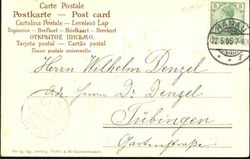 Carte Postale
Postkarte — Post card
Cartolina Postale — Levelező Lap
Dopisnice — Brefkort — Briefkaart — Brevkort
ОТКРЫТОЕ ПИСЬМО.
Tarjeta postal — Cartão postal
Union postale universelle.
5
22.5.06 7-8
Herrn Wilhelm Denzel
Dr. Denzel
Tübingen
Gartenstrasse